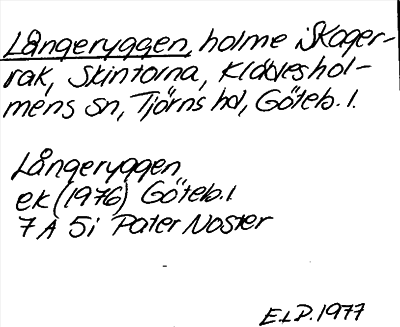 Långeryggen, holme i Skager-
rak, Skintorna, Klädeshol-
mens sn, Tjörns hd, Göteb. l.
Långeryggen
ek (1976) Göteb. l
7 A 5i Pater Noster
E.L.D. 1977